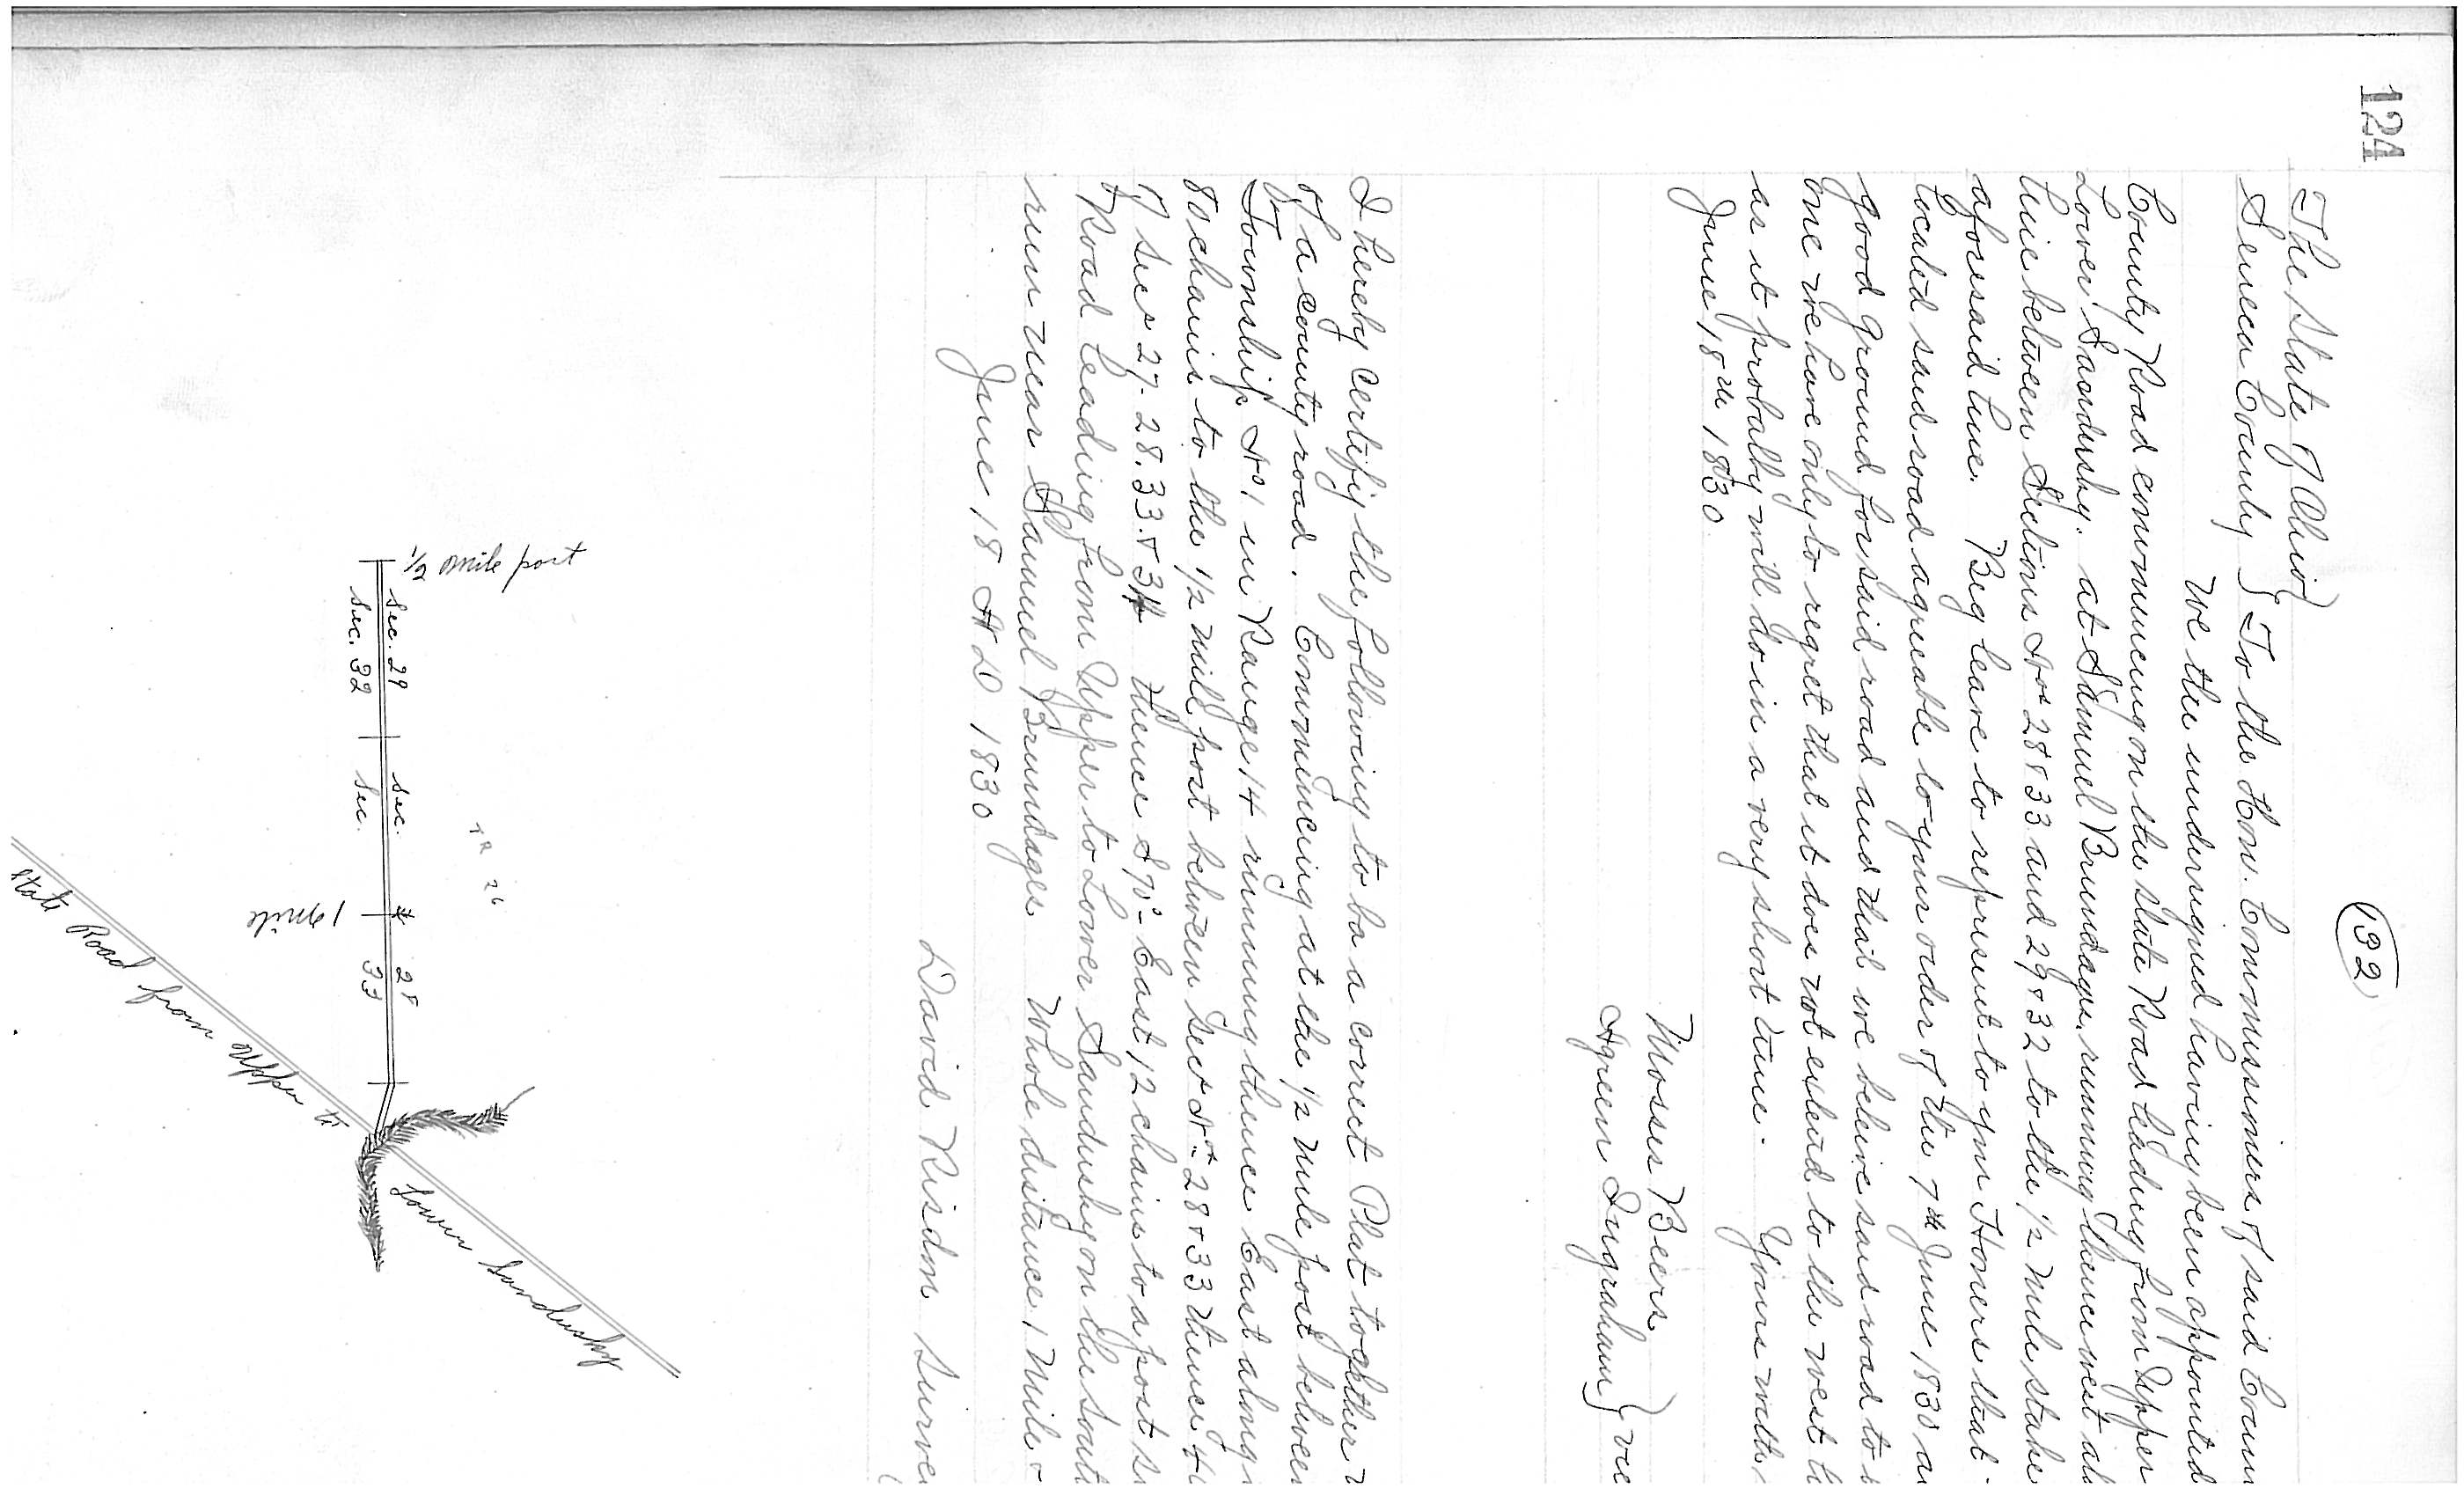 124
132
The State of Ohio }
Seneca County } To the Hon. Commissioners of said Coun
We the undersigned having been appointed
County Road commencing on the State Road leading from Upper
Lower Sandusky. at Samuel Brundages, running thence west al
line between Sections Nos 28 & 33 and 29 & 32 to the 1/2 mile stake
aforesaid line. Beg leave to represent to your Honers that
located said road agreeable to your order of the 7th June 1830 a
good ground for said road and that we believe said road to
one we have only to regret that it does not extend to the west
as it probally will do in a very short time. Yours with
June 18th 1830
Mosses Beers
Agreen Ingraham } vie
I hereby certify the following to be a correct Plat together
of a county road. Commencing at the 1/2 mile post between
Township No 1 in Range 14 running thence East along
80 chains to the 1/2 mile post between Secs Nos 28 & 33 thence 4
of Secs 27. 28. 33. & 34 thence S 70° East 12 chains to a post
Road leading from Upper to Lower Sandusky on the sout
run near Samuel Brundages. Whole distance 1 mile &
June 18 A D 1830
David Risdon Surve
1/2 mile post
Sec. 29
Sec. 32
Sec.
Sec.
TR 26
1 mile
28
33
State Road from Upper to
Lower Sandusky